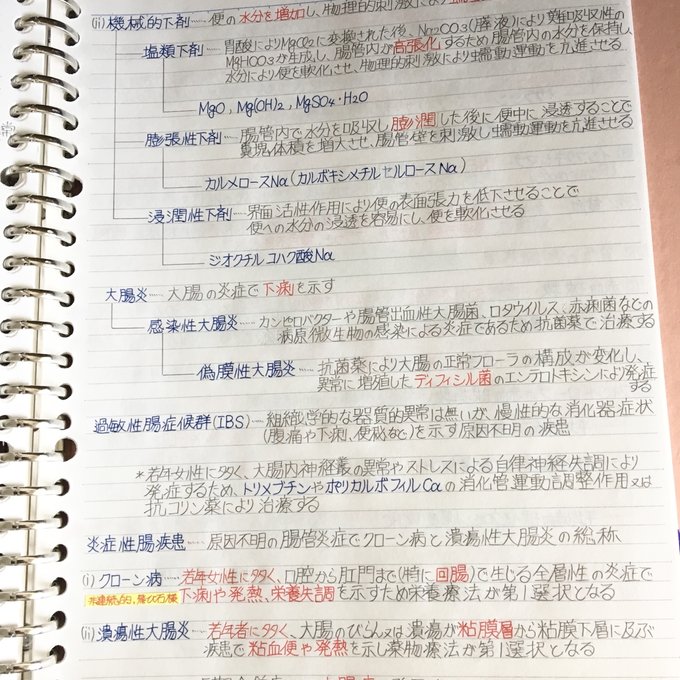 (ii) 機械的下剤…… 便の水分を増加し、物理的刺激により
塩類下剤…… 胃酸によりMgCl₂に変換された後、Na₂CO₃(膵液)により難吸収性の
MgHCO₃が生成し、腸管内が高張化するため腸管内の水分を保持し、
水分により便を軟化させ、物理的刺激により蠕動運動を亢進させる
MgO, Mg(OH)₂, MgSO₄・H₂O
膨張性下剤…… 腸管内で水分を吸収し膨潤した後に便中に浸透することで
糞塊体積を増大させ、腸管壁を刺激し蠕動運動を亢進させる
カルメロースNa(カルボキシメチルセルロースNa)
浸潤性下剤…… 界面活性作用により便の表面張力を低下させることで
便への水分の浸透を容易にし、便を軟化させる
ジオクチルコハク酸Na
大腸炎…… 大腸の炎症で下痢を示す
感染性大腸炎…… カンピロバクターや腸管出血性大腸菌、ロタウイルス、赤痢菌などの
病原微生物の感染による炎症であるため抗菌薬で治療する
偽膜性大腸炎…… 抗菌薬により大腸の正常フローラの構成が変化し、
異常に増殖したディフィシル菌のエンテロトキシンにより発症
する
過敏性腸症候群(IBS)…… 組織学的な器質的異常は無いが、慢性的な消化器症状
(腹痛や下痢、便秘など)を示す原因不明の疾患
*若年女性に多く、大腸内神経叢の異常やストレスによる自律神経失調により
発症するため、トリメブチンやポリカルボフィルCaの消化管運動調整作用又は
抗コリン薬により治療する
炎症性腸疾患…… 原因不明の腸管炎症でクローン病と潰瘍性大腸炎の総称
(i) クローン病…… 若年女性に多く、口腔から肛門まで(特に回腸)で生じる全層性の炎症で
非連続的、飛び石様 下痢や発熱、栄養失調を示すため栄養療法が第1選択となる
(ii) 潰瘍性大腸炎…… 若年者に多く、大腸のびらん又は潰瘍が粘膜層から粘膜下層に及ぶ
疾患で粘血便や発熱を示し薬物療法が第1選択となる